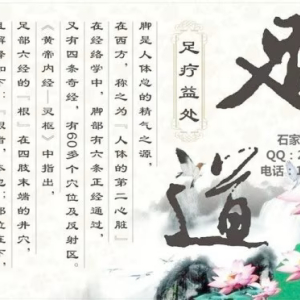 足
道
足疗益处
脚是人体总的精气之源，
在西方，称之为『人体的第二心脏』
在经络学中，脚部有六条正经通过，
又有四条奇经，有60多个穴位及反射区。
《黄帝内经—灵枢》中指出，
足部六经的『根』在四肢末端的井穴，
解释如下：『根者，本也；部位在下，
石家
QQ：
电话：1